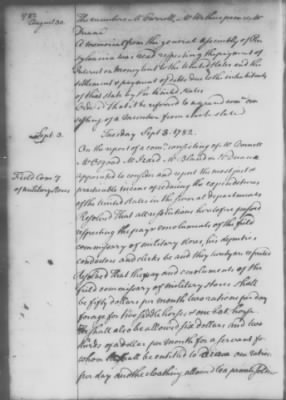 1782
August 30.
The members Mr Carroll, Mr Witherspoon & Mr
Duane
A memorial from the general Assembly of Pen
sylvania was read respecting the payment of
Interest on Money lent to the United States and the
settlement & payment of debts due to the inhabitants
of that state by the United States
Ordered That it be referred to a grand comee con
sisting of a member from each state
Sept. 3.
Tuesday Sept. 3. 1782.
On the report of a comee consisting of Mr Cornell
Mr Osgood Mr Izard, Mr Bland & Mr Duane
appointed to consider and report the most just &
practicable means of reducing the expenditures
of the United States in the several departments
Field Comy
of military Stores
Resolved That all resolutions heretofore passed
respecting the pay & emoluments of the field
commissary of military stores, his deputies
conductors and clerks be and they hereby are repealed
Resolved That the pay and emoluments of the
field commissary of military stores shall
be fifty dollars per month, two rations per day
forage for two saddle horses & one bat horse.
He shall also be allowed six dollars and two
thirds of a dollar per month for a servant for
whom he shall be entitled to draw one ration
per day and the cloathing allowed to a private soldier